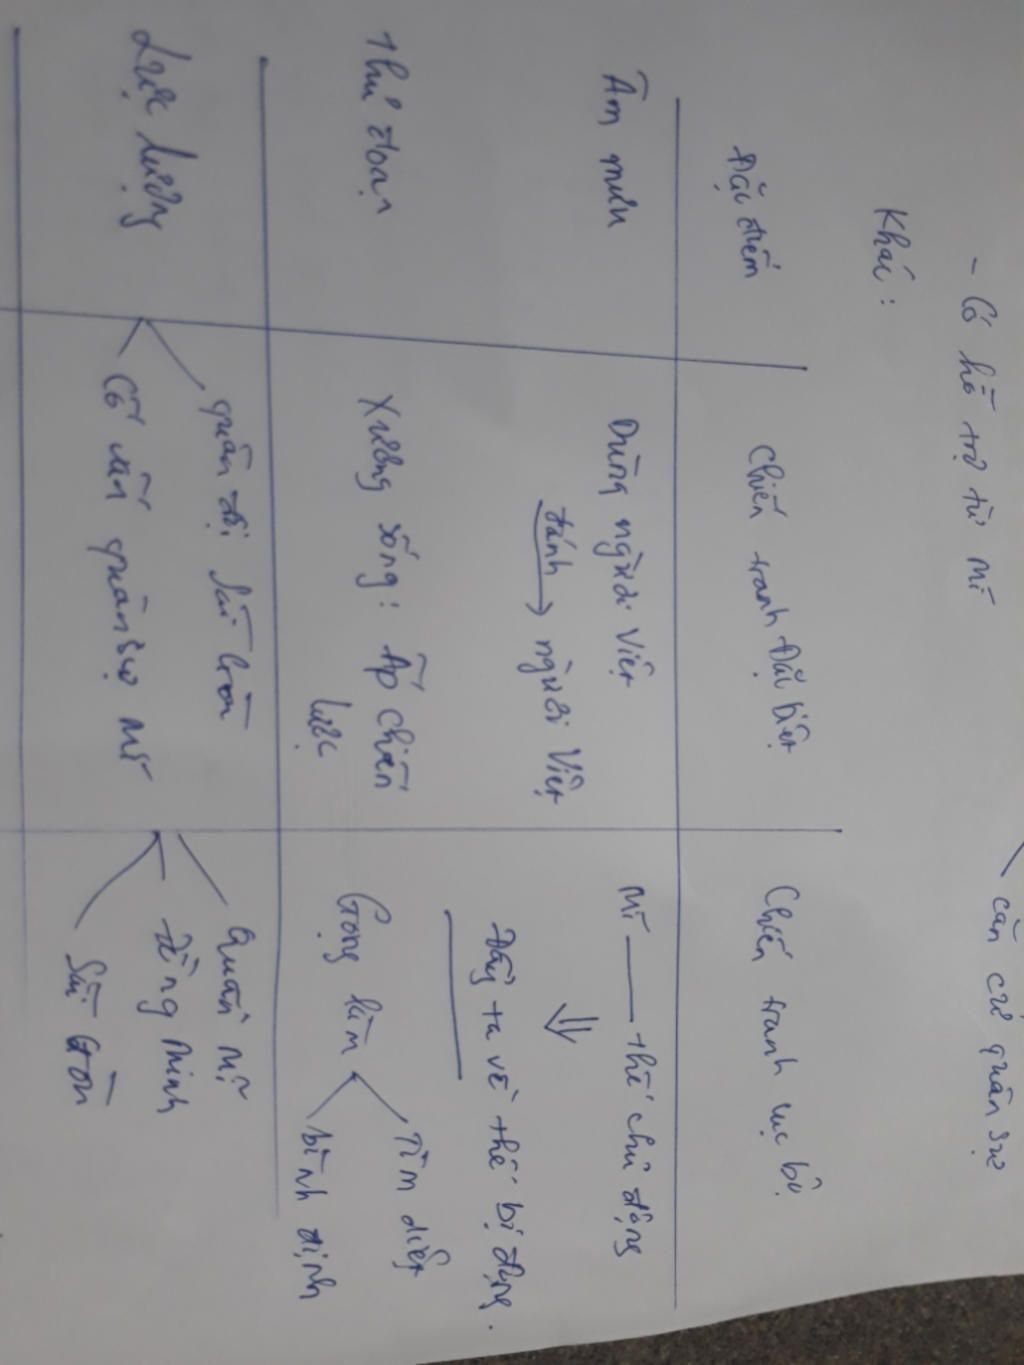 căn cứ quân sự
- Có hỗ trợ từ Mĩ
Khác :
Đặc điểm
Chiến tranh Đặc biệt
Chiến tranh cục bộ
Âm mưu
Dùng người Việt
đánh → người Việt
Mĩ — thế chủ động
⇓
Đẩy ta về thế bị động.
Thủ đoạn
Xương sống : Ấp chiến
lược
Gọng kìm
Tìm diệt
bình định
Lực lượng
quân đội Sài Gòn
Cố vấn quân sự Mĩ
Quân Mĩ
Đồng Minh
Sài Gòn